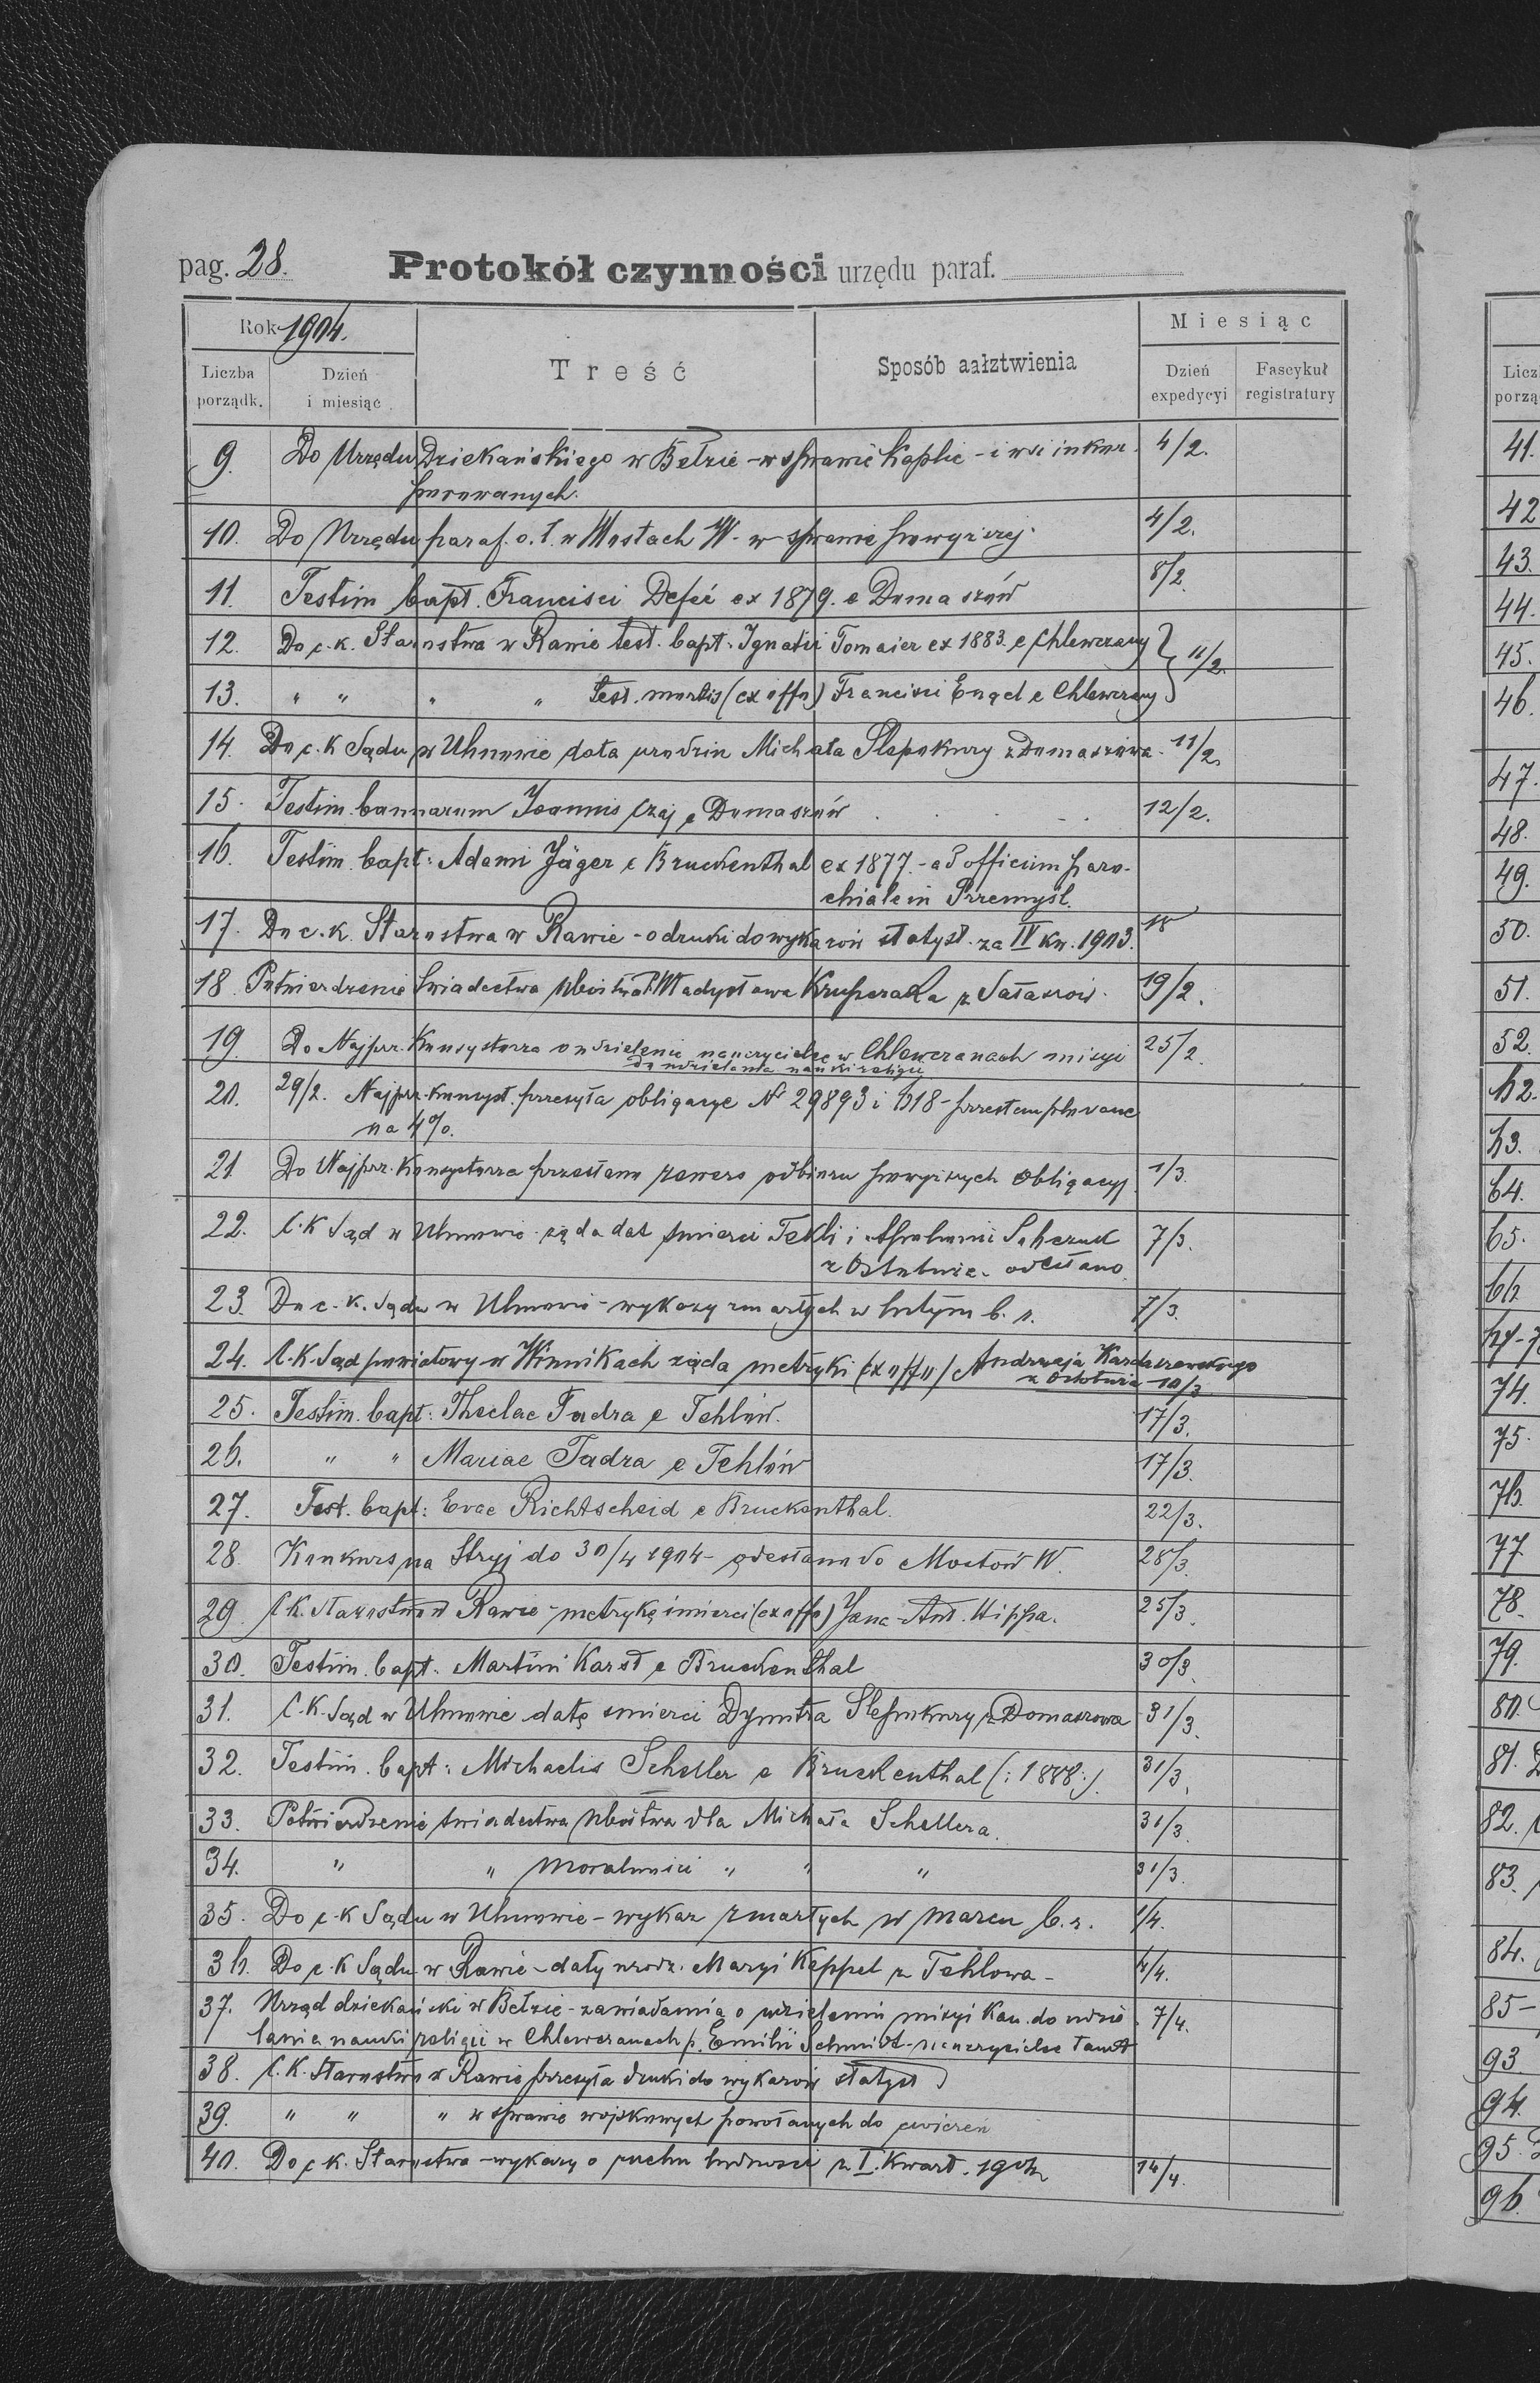 pag. 28.
Protokół czynności urzędu paraf.
Rok 1904.
Liczba porządk.
Dzień i miesiąc
Treść
Sposób aałztwienia
Miesiąc
Dzień expedycyi
Fascykuł registratury
9. Do Urzędu Dziekańskiego w Bełzie - w sprawie Kaplic - i wsi inkor- 4/2.
porowanych.
10. Do Urzędu paraf. o. ł. w Mostach W. w sprawie powyższej. 4/2.
11. Testim bapt. Francisci Defeć ex 1879. e Domaszów 8/2
12. Do c. k. Starostwa w Rawie test. bapt. Ignatii Tomaier ex 1883. e Chlewczany 11/2.
13. " " " " test. mortis (ex offo) Francisci Engel e Chlewczany
14. Do c. k Sądu w Uhnowie data urodzin Michała Slepokury z Domaszowa. 11/2.
15. Testim. bannorum Joannis Czaj e Domaszów . . . . 12/2.
16. Testim. bapt: Adami Jäger e Bruckenthal ex 1877. - ad officium paro-
chiale in Przemyśl.
17. Do c. k. Starostwa w Rawie - o druki do wykazów statyst. za IV kw. 1903. 18
18 Potwierdzenie świadectwa ubóstwa Władysława z 19/2.
19. Do Najprz. Konsystorza o udzielenie nauczycielce w Chlewczanach misyi 25/2.
do udzielania nauki religii
20. 29/2. Najprz. konsyst. przesyła obligacye Nr 29893 i 1318 - przestemplowane
na 4%.
21 Do Najprz. Konsystorza przesłano rewers odbioru powyższych Obligacyj. 1/3.
22. C. K Sąd w Uhnowie żąda dat śmierci Tekli i 7/3.
odesłano.
23. Do c. k. Sądu w Uhnowie - wykazy zmarłych w lutym b. r. 7/3.
24. C. K. Sąd powiatowy w Winnikach żąda metryki (ex offo) Andrzeja
10/3
25. Testim. bapt: Theclae Fudra e Tehlów. 17/3.
26. " " Mariae Fudra e Tehlów 17/3.
27. Test. bapt: Evae Richtscheid e Bruckenthal. 22/3.
28. Konkurs na Stryj do 30/4 1904 - odesłano do Mostów W. 28/3.
29. C k. Starostwo w Rawie - metrykę śmierci (ex offo) Jana Ant. Hippa. 25/3.
30. Testim. bapt: Martini Karst e Bruckenthal 30/3.
31. C. K. Sąd w Uhnowie datę smierci Dymitra Slepokury z Domaszowa 31/3.
32. Testim. bapt: Michaelis Scheller e Bruckenthal (: 1888:). 31/3.
33. Potwierdzenie świadectwa ubóstwa dla Michała Schellera. 31/3.
34. " " moralności " " " 31/3.
35. Do c. k Sądu w Uhnowie - wykaz zmarłych w marcu b. r. 1/4.
36. Do c. k Sądu w Rawie - daty urodz. Maryi Keppel z Tehlowa - 4/4.
37. Urząd dziekański w Bełzie - zawiadamia o udzieleniu misyi Kan. do udzie- 7/4.
lania nauki religii w Chlewczanach p. Emilii Schmidt - nauczycielce tamt
38. C. K. Starostwo w Rawie przesyła druki do wykazów statyst
39. " " " w sprawie wojskowych powołanych do ćwiczeń
40. Do c. k. Starostwa - wykazy o ruchu ludności z I. Kwart. 1904 14/4.
Licz
porzą
41.
42
43.
44.
45.
46.
47.
48.
49.
50.
51.
52.
62.
63.
64.
65.
66
74.
75.
76.
77
78.
79.
80.
81.
82.
83.
84.
85-
93
94.
95.
96.